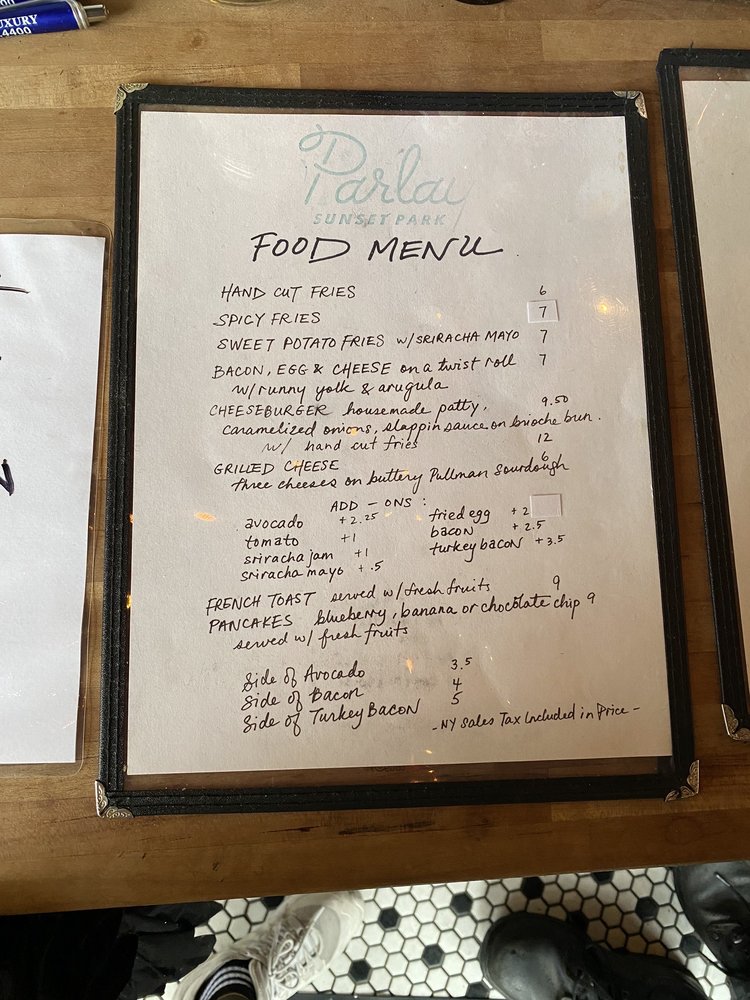 UXURY
4400
Parlay
SUNSET PARK
FOOD MENU
HAND CUT FRIES 6
SPICY FRIES 7
SWEET POTATO FRIES w/SRIRACHA MAYO 7
BACON, EGG & CHEESE on a twist roll 7
w/runny yolk & arugula
CHEESEBURGER housemade patty, 9.50
caramelized onions, slappin sauce on brioche bun.
w/ hand cut fries 12
GRILLED CHEESE 6
three cheeses on buttery Pullman sourdough
ADD - ONS :
avocado +2.25 fried egg +2
tomato +1 bacon +2.5
sriracha jam +1 turkey bacon +3.5
sriracha mayo +.5
FRENCH TOAST served w/fresh fruits 9
PANCAKES blueberry, banana or chocolate chip 9
served w/ fresh fruits
Side of Avocado 3.5
Side of Bacon 4
Side of Turkey Bacon 5
- NY Sales Tax Included in Price -